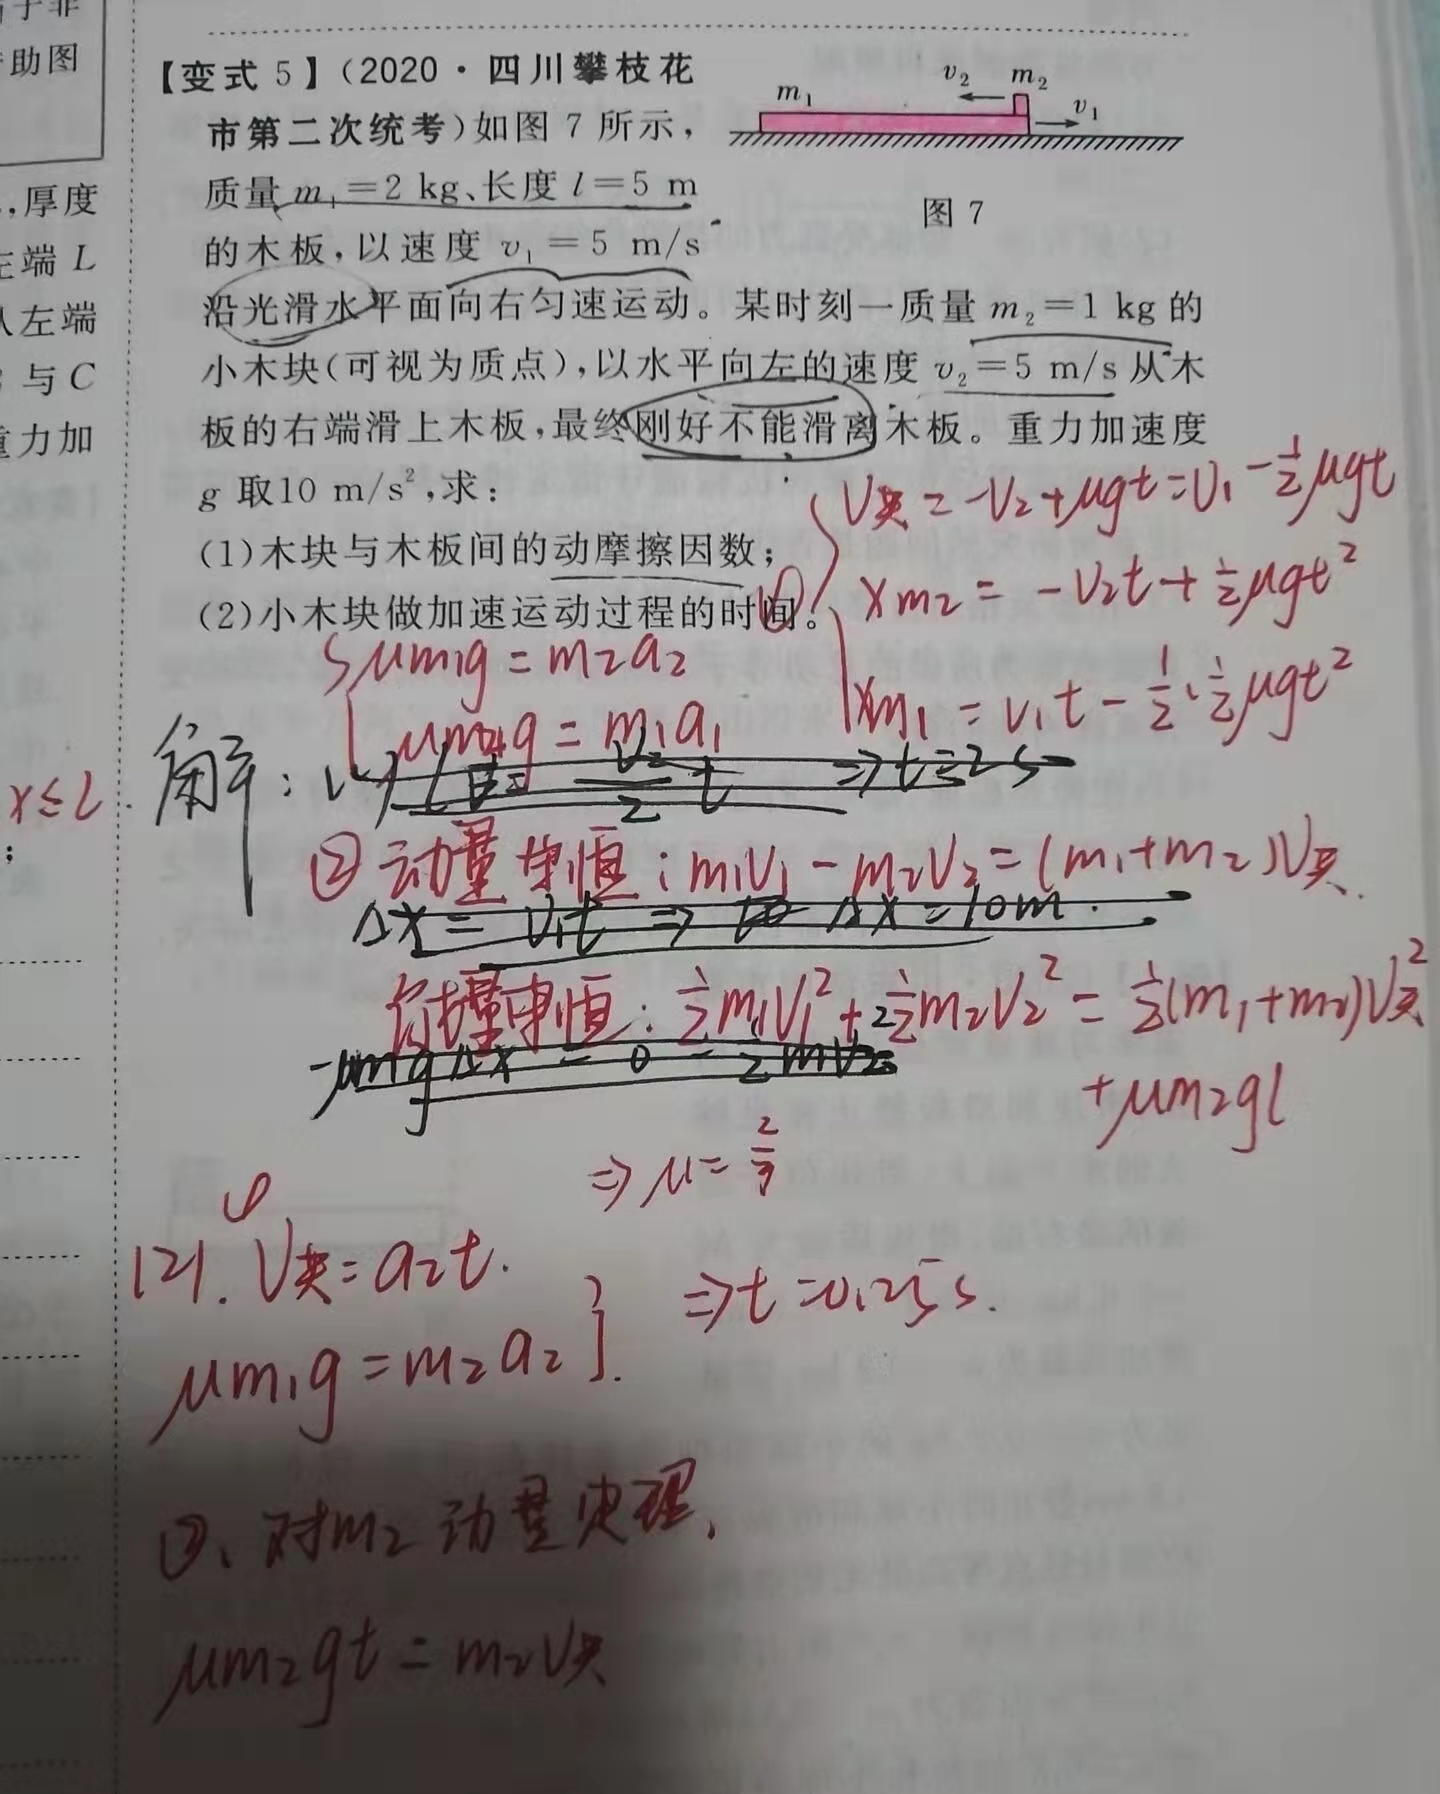 于非
助图
,厚度
左端 L
从左端
与 C
重力加
x≤L
;
【变式 5】(2020·四川攀枝花
市第二次统考)如图 7 所示,
质量 m₁=2 kg、长度 l=5 m
的木板,以速度 v₁=5 m/s
沿光滑水平面向右匀速运动。某时刻一质量 m₂=1 kg 的
小木块(可视为质点),以水平向左的速度 v₂=5 m/s 从木
板的右端滑上木板,最终刚好不能滑离木板。重力加速度
g 取10 m/s²,求:
(1)木块与木板间的动摩擦因数;
(2)小木块做加速运动过程的时间。
m₁
v₂
m₂
v₁
图 7
① V共=-V₂+μgt=V₁-½μgt
xm₂=-V₂t+½μgt²
xm₁=V₁t-½·½μgt²
μm₁g=m₂a₂
μm₂g=m₁a₁
解:(1)
V₂/2 t ⇒t=2s
②动量守恒:m₁V₁-m₂V₂=(m₁+m₂)V共.
Δx=V₁t ⇒ Δx=10m.
能量守恒:½m₁V₁²+½m₂V₂²=½(m₁+m₂)V共²
+μm₂gl
-μmgΔx=0-½mV₂²
⇒μ=2/3
(2). ① V共=a₂t.
⇒t=0.25s.
μm₁g=m₂a₂
②、对m₂动量定理,
μm₂gt=m₂V共